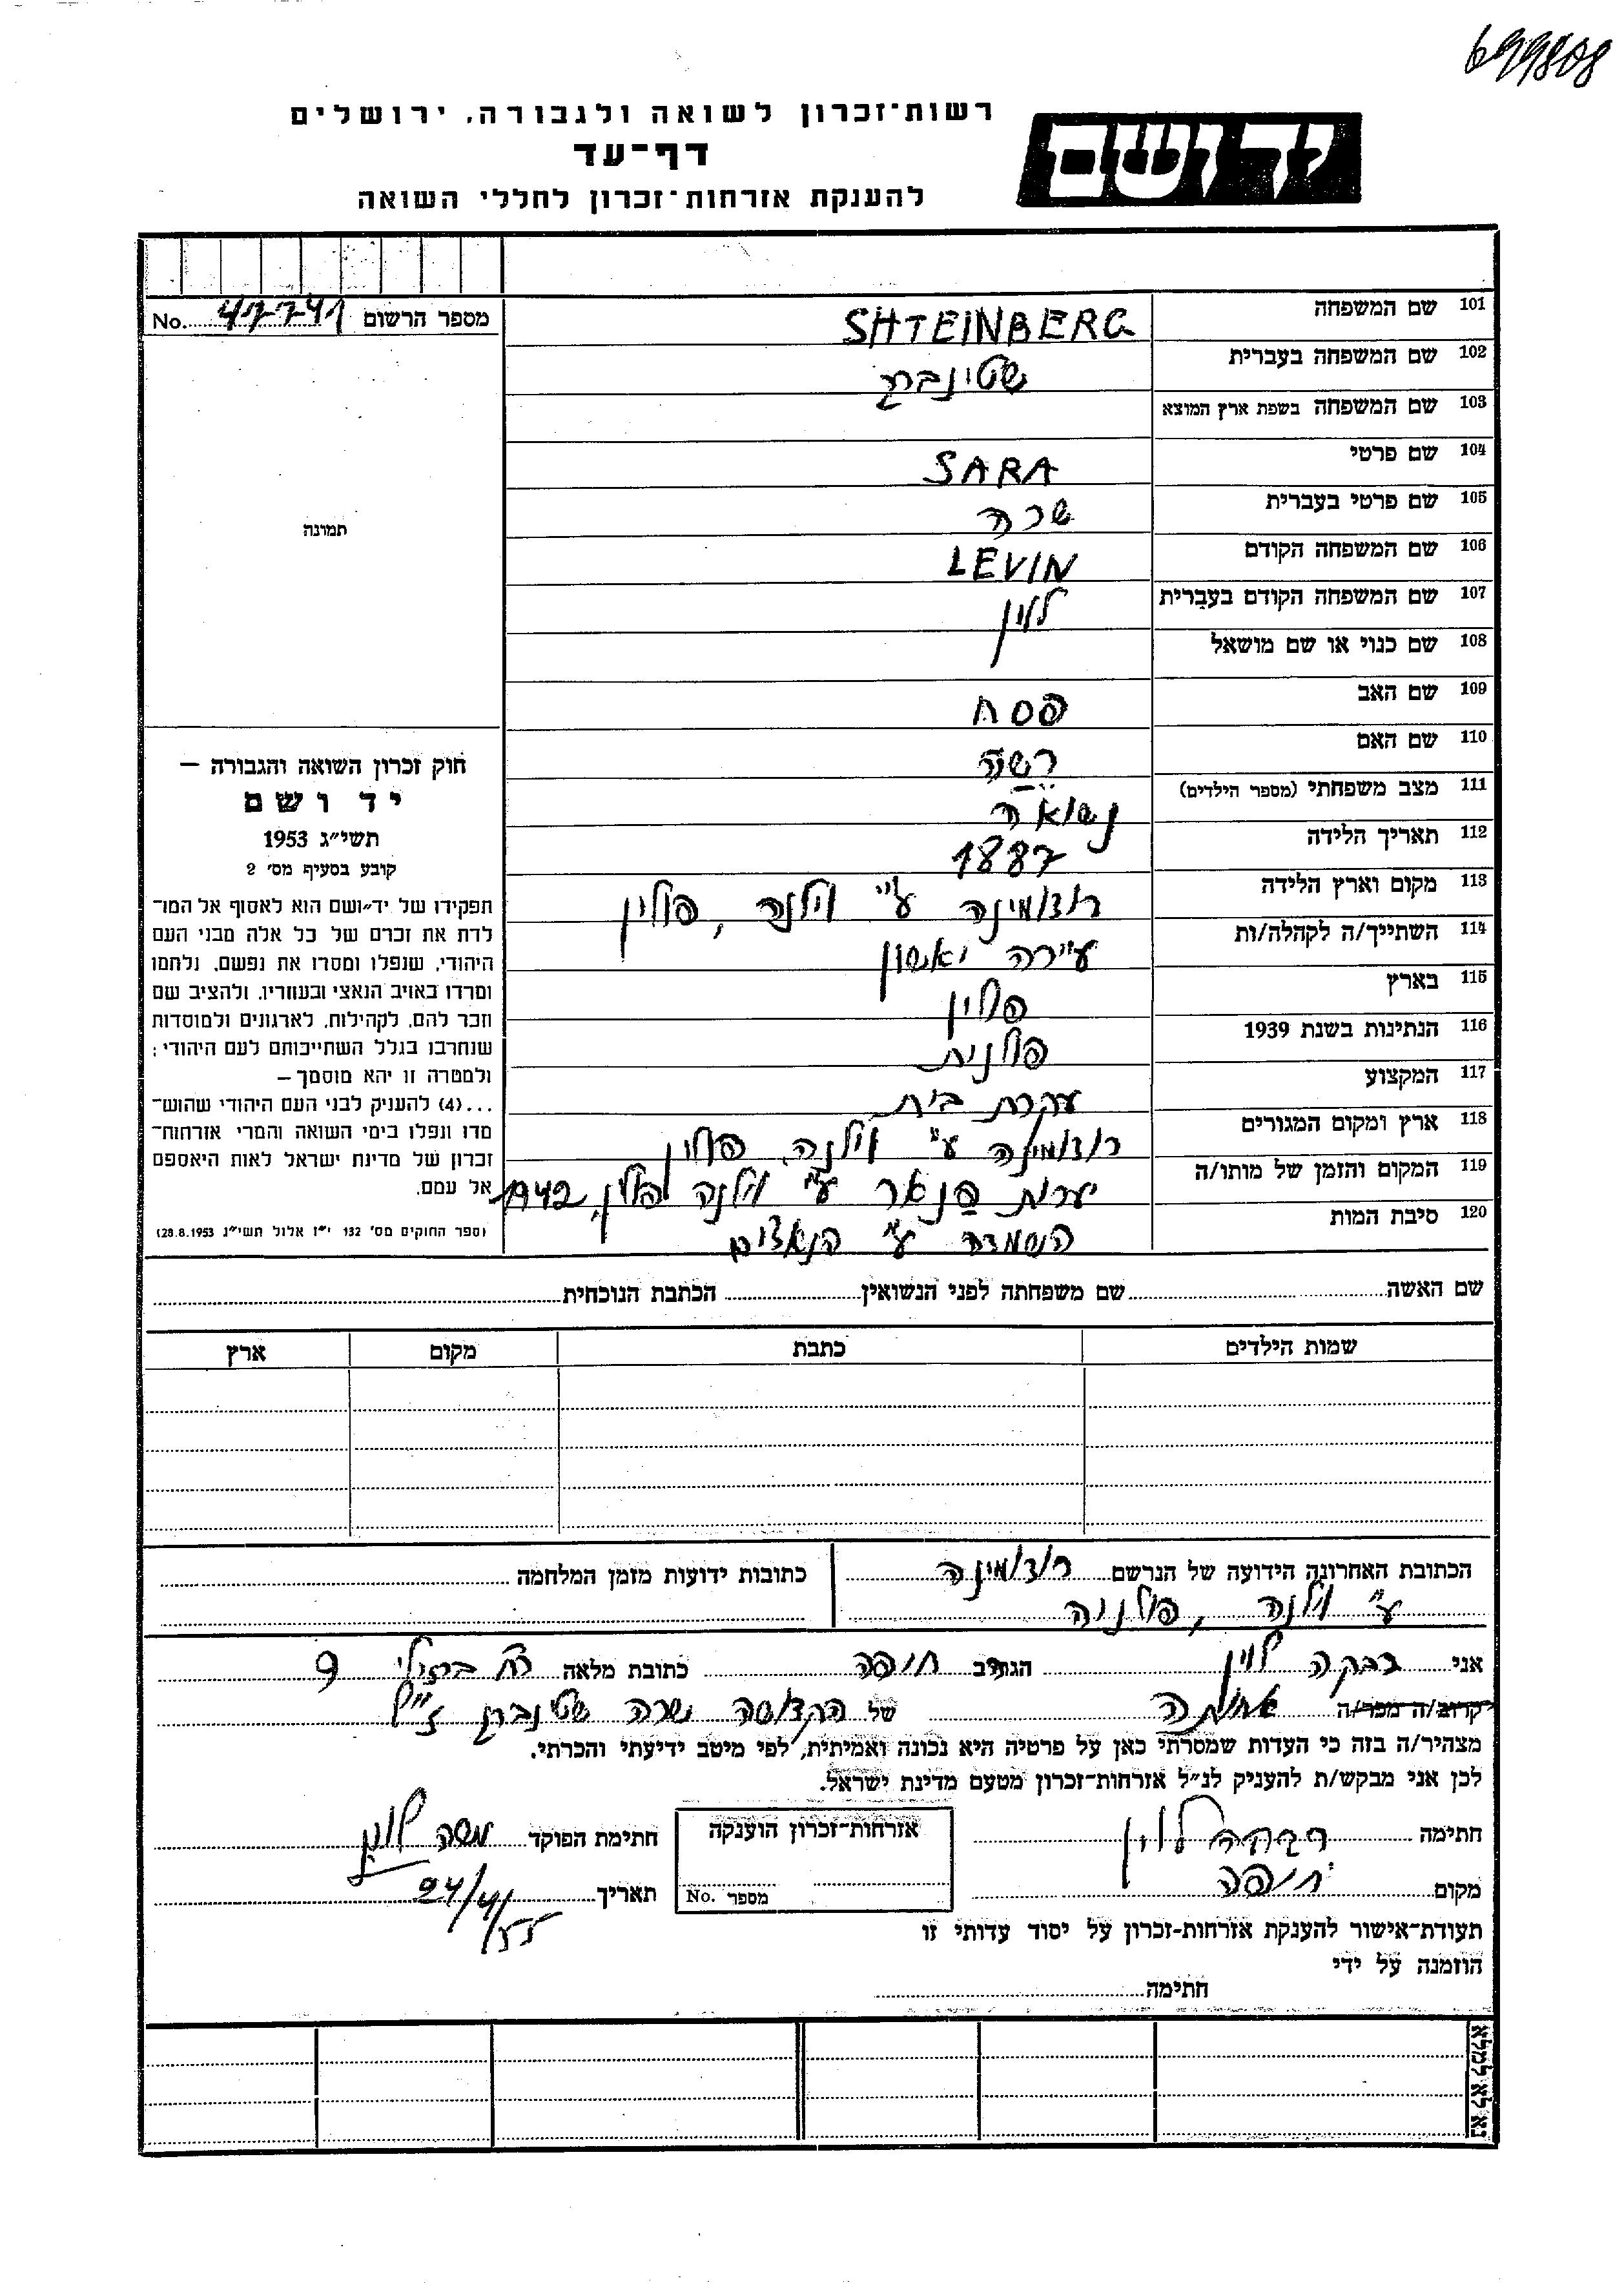 699808
רשות-זכרון לשואה ולגבורה, ירושלים
דף-עד
להענקת אזרחות-זכרון לחללי השואה
יד ושם
מספר הרשום No. 47741
101 שם המשפחה SHTEINBERG
102 שם המשפחה בעברית שטינברג
103 שם המשפחה בשפת ארץ המוצא
104 שם פרטי SARA
105 שם פרטי בעברית שרה
106 שם המשפחה הקודם LEVIN
107 שם המשפחה הקודם בעברית לוין
108 שם כנוי או שם מושאל
109 שם האב פסח
110 שם האם רשה
111 מצב משפחתי (מספר הילדים) נשואה
112 תאריך הלידה 1887
113 מקום וארץ הלידה רודומינה ע"י וילנה, פולין
114 השתייך/ה לקהלה/ות עירה יאשון
115 בארץ פולין
116 הנתינות בשנת 1939 פולנית
117 המקצוע עקרת בית
118 ארץ ומקום המגורים רודומינה ע"י וילנה, פולין
119 המקום והזמן של מותו/ה יערות פנאר ע"י וילנה פולין, 1942
120 סיבת המות הושמדה ע"י הנאצים
תמונה
חוק זכרון השואה והגבורה –
יד ושם
תשי״ג 1953
קובע בסעיף מס׳ 2
תפקידו של יד-ושם הוא לאסוף אל המו־
לדת את זכרם של כל אלה מבני העם
היהודי, שנפלו ומסרו את נפשם, נלחמו
ומרדו באויב הנאצי ובעוזריו, ולהציב שם
וזכר להם, לקהילות, לארגונים ולמוסדות
שנחרבו בגלל השתייכותם לעם היהודי;
ולמטרה זו יהא מוסמך –
...(4) להעניק לבני העם היהודי שהוש־
מדו ונפלו בימי השואה והמרי אזרחות־
זכרון של מדינת ישראל לאות היאספם
אל עמם.
(ספר החוקים מס׳ 132 י״ז אלול תשי״ג 28.8.1953)
שם האשה שם משפחתה לפני הנשואין הכתבת הנוכחית
שמות הילדים כתבת מקום ארץ
הכתובת האחרונה הידועה של הנרשם רודומינה
ע"י וילנה, פולניה
כתובות ידועות מזמן המלחמה
אני רבקה לוין הגר/ב חיפה כתובת מלאה רח' ברזילי 9
קרוב/ה מכר/ה אחותה של הקדושה שרה שטינברג ז"ל
מצהיר/ה בזה כי העדות שמסרתי כאן על פרטיה היא נכונה ואמיתית, לפי מיטב ידיעתי והכרתי.
לכן אני מבקש/ת להעניק לנ״ל אזרחות-זכרון מטעם מדינת ישראל.
חתימה רבקה לוין
מקום חיפה
אזרחות-זכרון הוענקה
מספר No.
חתימת הפוקד משה לוין
תאריך 24/4/55
תעודת-אישור להענקת אזרחות-זכרון על יסוד עדותי זו
הוזמנה על ידי
חתימה
נא לא למלא